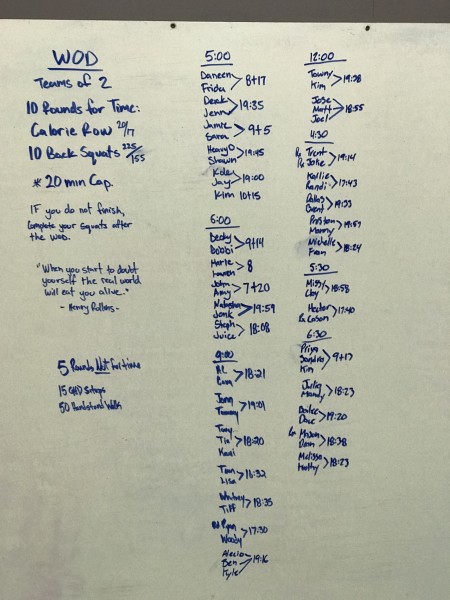 WOD
Teams of 2
10 Rounds for Time:
Calorie Row 20/17
10 Back Squats 225/155
* 20 min Cap.
IF you do not finish,
Complete your squats after
the WOD.
"When you start to doubt
yourself the real world
will eat you alive."
- Henry Rollins
5 Rounds Not For time
15 GHD Situps
50 Handstand Walk
5:00
Daneen
Frida > 8+17
Derek
Jenn > 19:35
Jamie
Sara > 9+5
Heavy D
Shawn > 19:45
Jay > 19:00
Kim 10+15
6:00
Becky
Bobbi > 9+14
Marie
Lauren > 8
John
Amy > 7+20
Jonk > 19:59
Steph
Juice > 18:08
9:00
> 18:21
Tammy > 19:01
Tony
Tia > 18:20
Tom
Lisa > 16:32
Whitney
Tiff > 18:35
Rx Ryan
Woody > 17:30
Alecia
Ben > 19:16
Kyle
12:00
Tawny
Kim >
Jose
Matt > 18:55
Joel
4:30
Rx Trent
Rx Jolie > 19:14
Kallie
Randi > 17:43
Dallas
Brent > 19:33
Preston
Manny > 19:57
Michelle
Fran > 18:24
5:30
Missy
Clay > 18:58
Hector
Rx Cason > 17:40
6:30
Priya
Sandra > 9+17
Kim
Julia
Mandy > 18:23
Dave > 19:20
> 18:38
Melissa
Hatty > 18:23